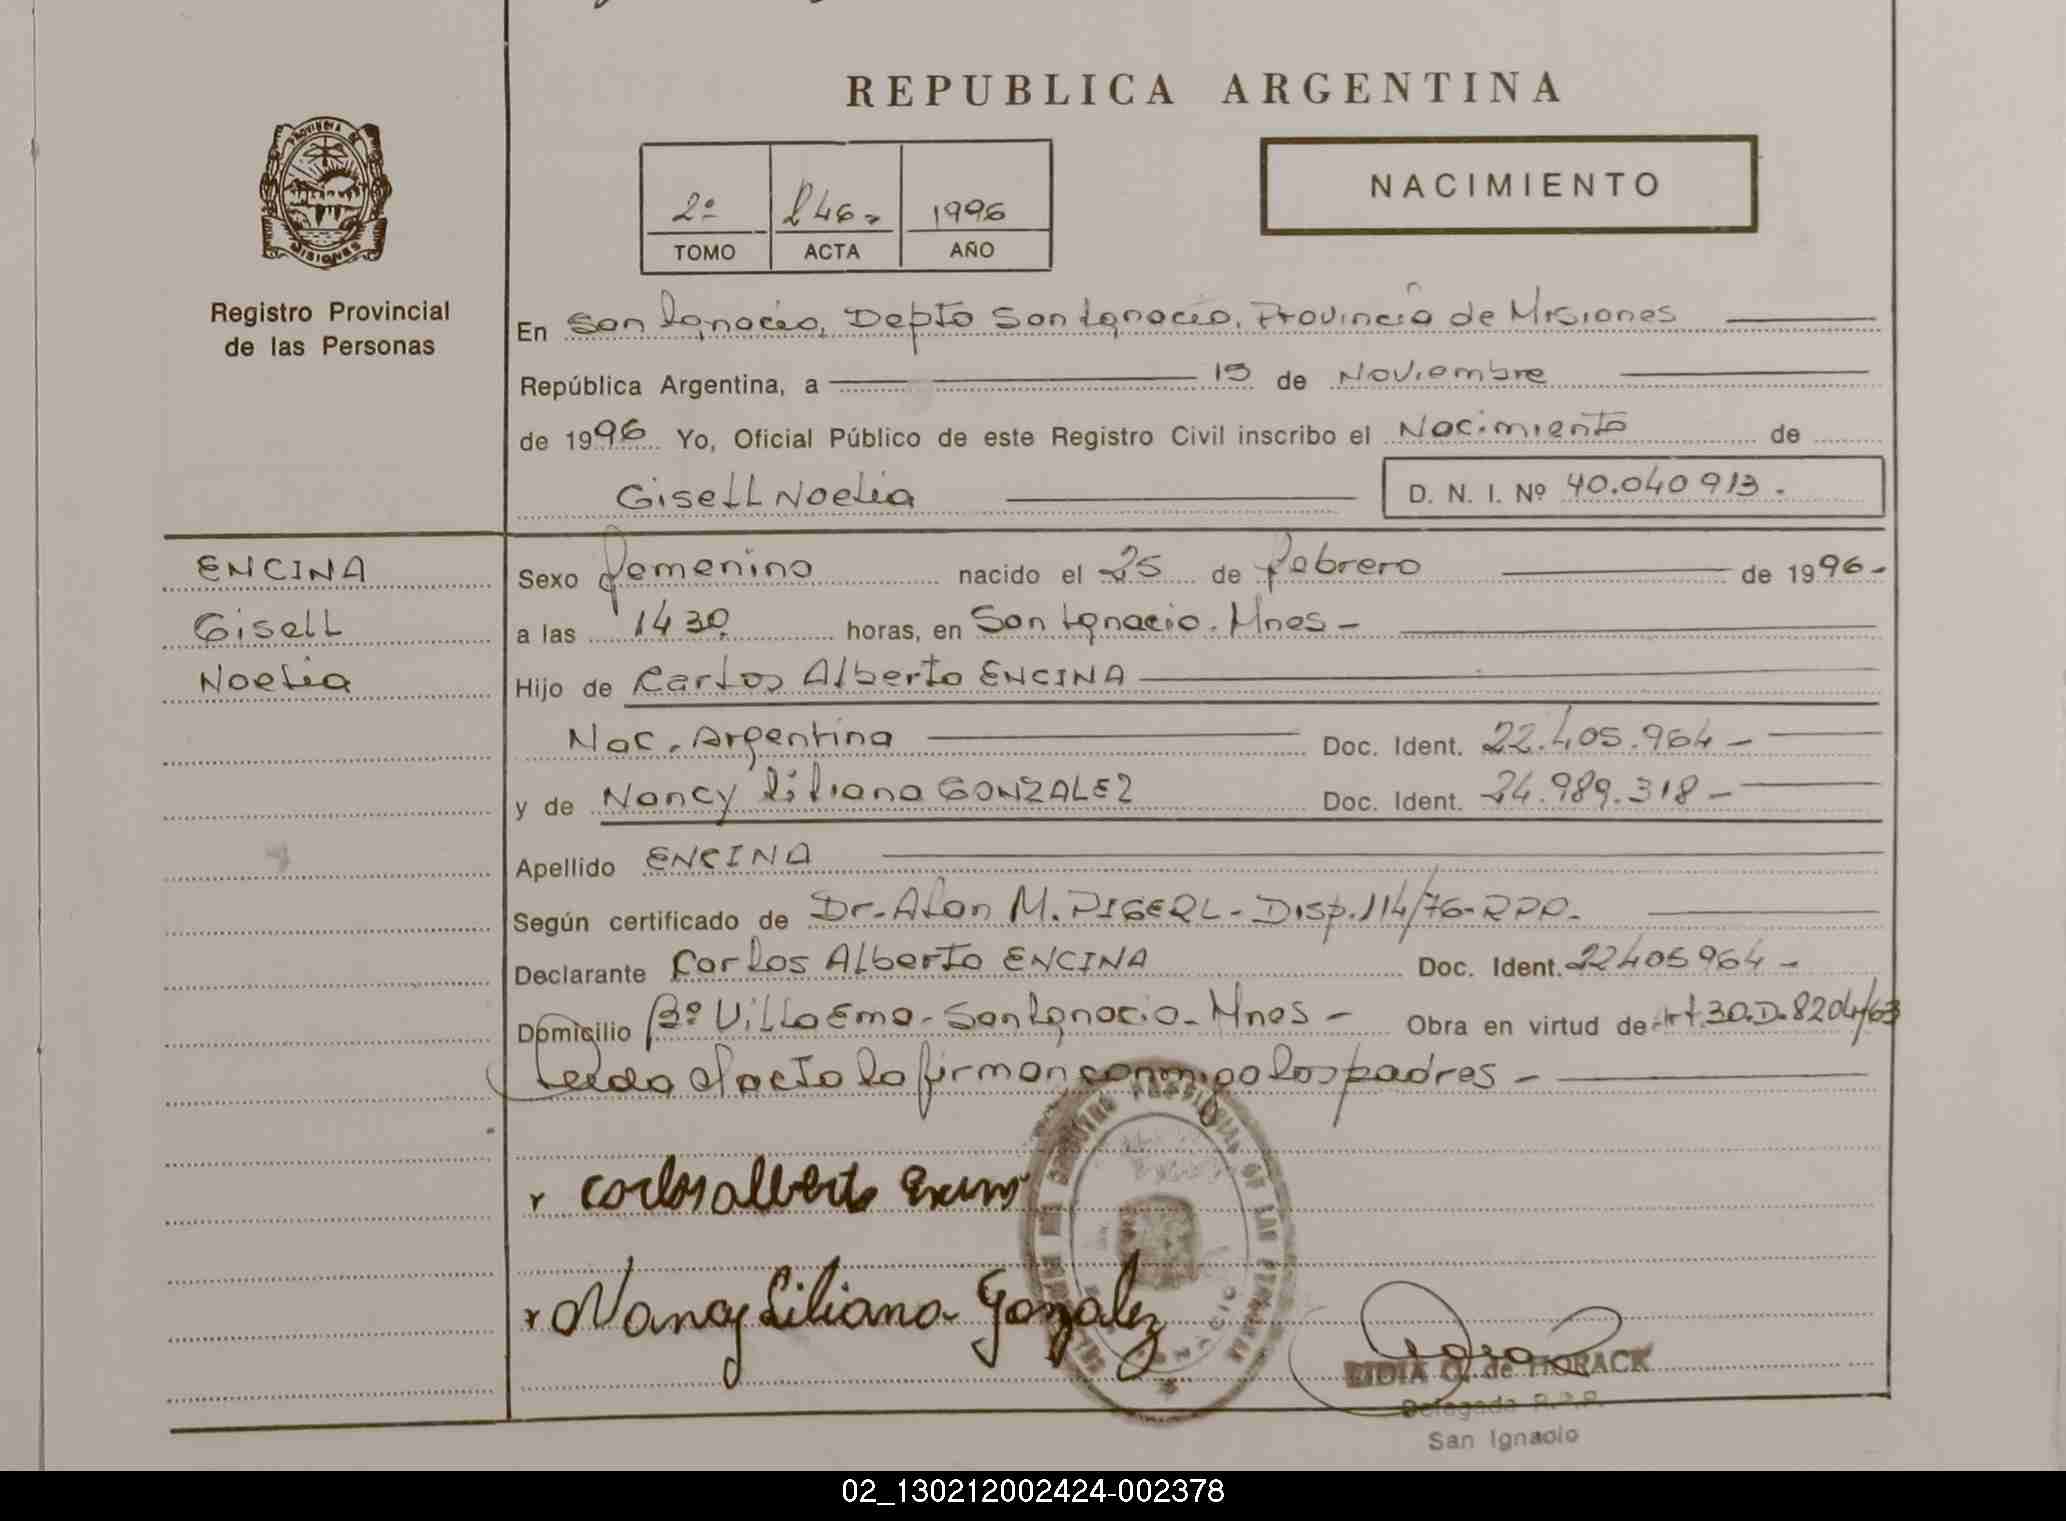 REPUBLICA ARGENTINA
PROVINCIA DE
MISIONES
Registro Provincial
de las Personas
2º 246- 1996
TOMO ACTA AÑO
NACIMIENTO
En San Ignacio, Depto San Ignacio, Provincia de Misiones
República Argentina, a 15 de Noviembre
de 1996 Yo, Oficial Público de este Registro Civil inscribo el Nacimiento de
Gisell Noelia D. N. I. Nº 40.040 913.
ENCINA
Gisell
Noelia
Sexo femenino nacido el 25 de febrero de 1996-
a las 14 30 horas, en San Ignacio. Mnes-
Hijo de Carlos Alberto ENCINA
Nac. Argentina Doc. Ident. 22.405.964-
y de Nancy Liliana GONZALEZ Doc. Ident. 24.989.318-
Apellido ENCINA
Según certificado de Dr. Alan M. Disp. 114/76-RPP.
Declarante Carlos Alberto ENCINA Doc. Ident. 22405964-
Domicilio Bº Villa Ema- San Ignacio- Mnes- Obra en virtud de Art. 30.D.8204/63
Leida el acta la firman conmigo los padres-
x Carlos alberto
x Nancy Liliana Gonzalez
LIDIA G. de HORACK
Delegada R.P.P.
San Ignacio
02_130212002424-002378